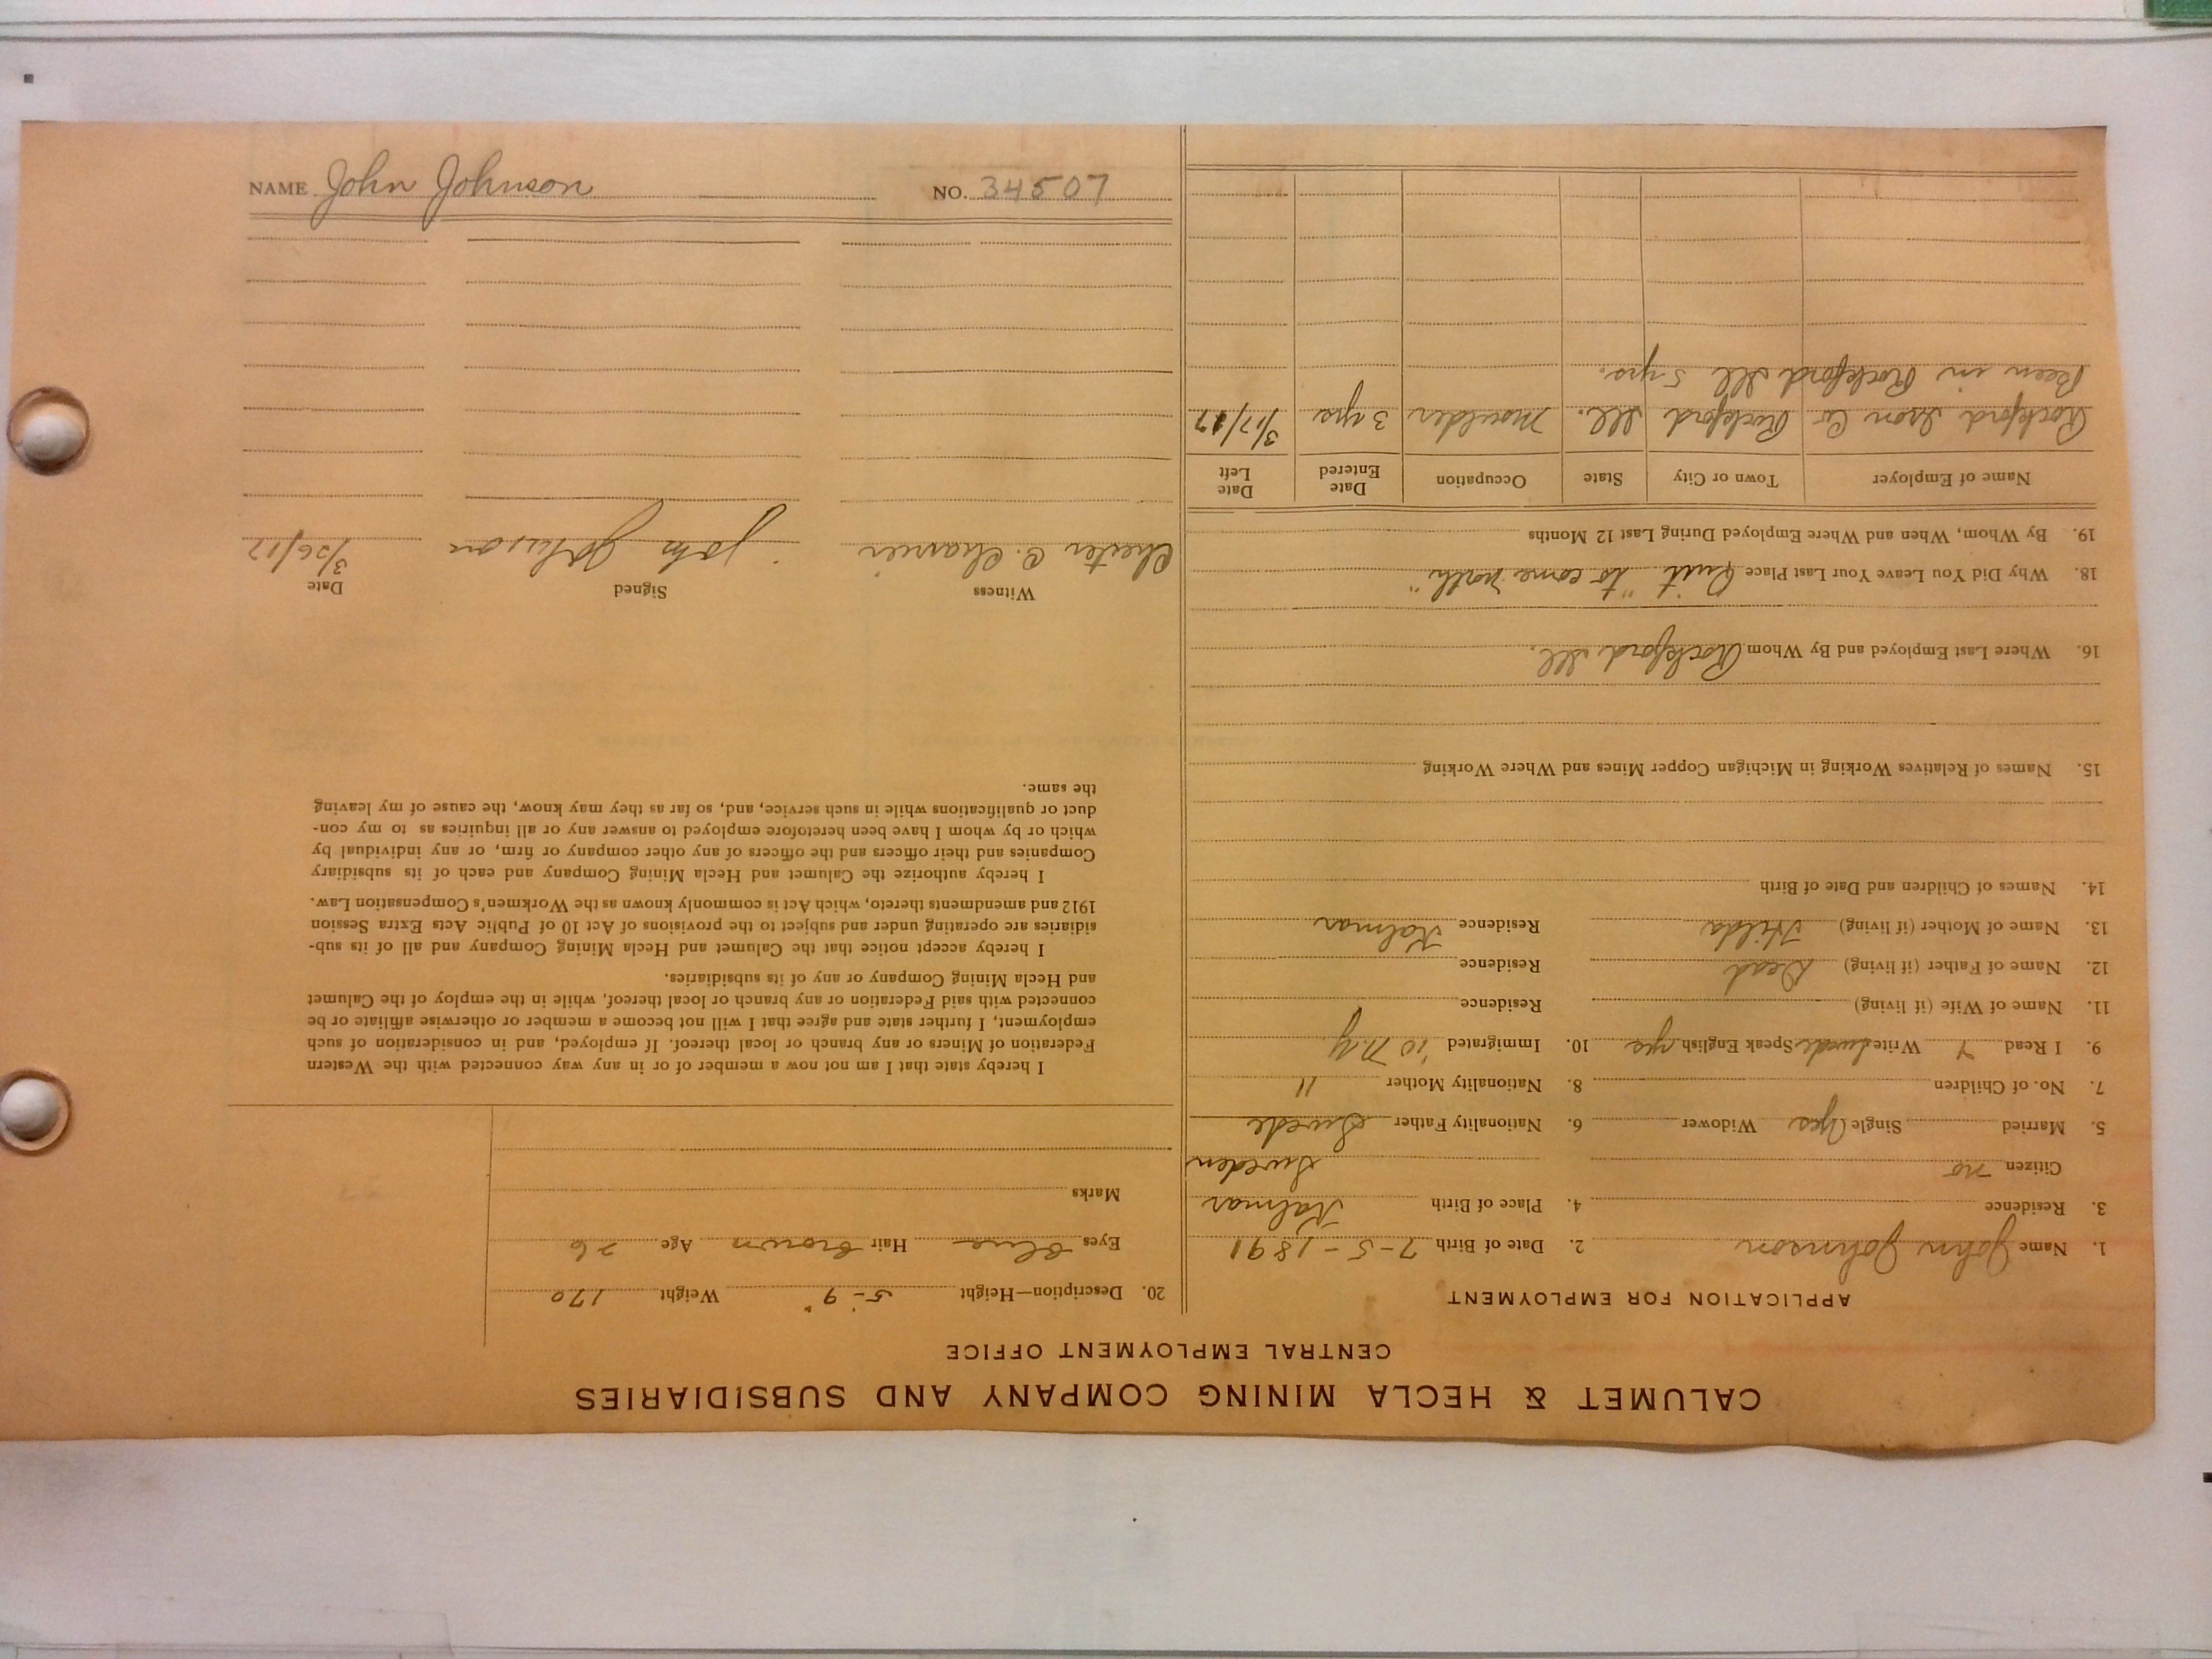 CALUMET & HECLA MINING COMPANY AND SUBSIDIARIES
CENTRAL EMPLOYMENT OFFICE
APPLICATION FOR EMPLOYMENT
1. Name John Johnson 2. Date of Birth 7-5-1891
3. Residence 4. Place of Birth Kalmar
Citizen no Sweden
5. Married Single yes Widower 6. Nationality Father Swede
7. No. of Children 8. Nationality Mother "
9. I Read Write Swede Speak English yes 10. Immigrated '10 N.Y.
11. Name of Wife (if living) Residence
12. Name of Father (if living) Dead Residence
13. Name of Mother (if living) Hilda Residence Kalmar
14. Names of Children and Date of Birth
15. Names of Relatives Working in Michigan Copper Mines and Where Working
16. Where Last Employed and By Whom Rockford Ill.
18. Why Did You Leave Your Last Place Quit "to come north"
19. By Whom, When and Where Employed During Last 12 Months
Name of Employer Town or City State Occupation Date Entered Date Left
Rockford Iron Co Rockford Ill. Moulder 3 yrs 3/17/17
Been in Rockford Ill 5 yrs.
20. Description—Height 5-9" Weight 170
Eyes Blue Hair Brown Age 26
Marks
I hereby state that I am not now a member of or in any way connected with the Western
Federation of Miners or any branch or local thereof. If employed, and in consideration of such
employment, I further state and agree that I will not become a member or otherwise affiliate or be
connected with said Federation or any branch or local thereof, while in the employ of the Calumet
and Hecla Mining Company or any of its subsidiaries.
I hereby accept notice that the Calumet and Hecla Mining Company and all of its sub-
sidiaries are operating under and subject to the provisions of Act 10 of Public Acts Extra Session
1912 and amendments thereto, which Act is commonly known as the Workmen's Compensation Law.
I hereby authorize the Calumet and Hecla Mining Company and each of its subsidiary
Companies and their officers and the officers of any other company or firm, or any individual by
which or by whom I have been heretofore employed to answer any or all inquiries as to my con-
duct or qualifications while in such service, and, so far as they may know, the cause of my leaving
the same.
Witness Signed Date
Chester C. John Johnson 3/26/17
NAME John Johnson NO. 34507